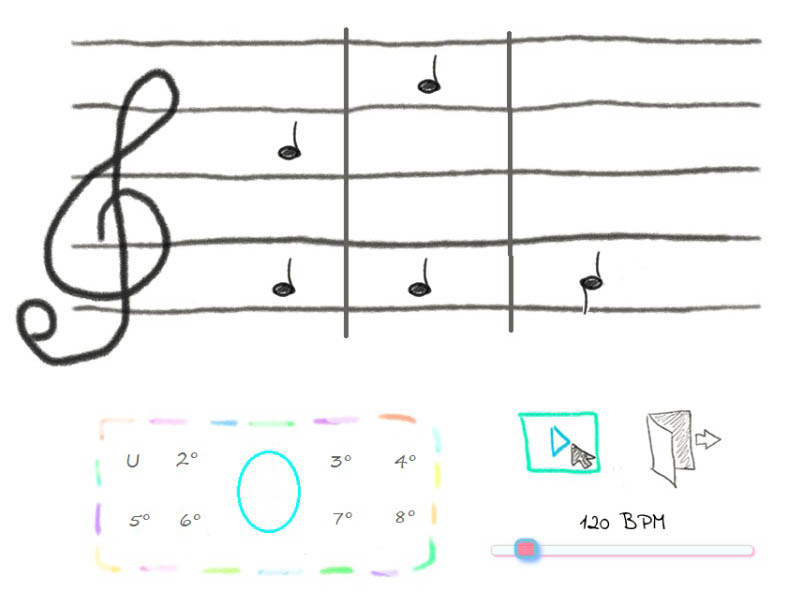 U 2° 3° 4°
5° 6° 7° 8°
120 BPM